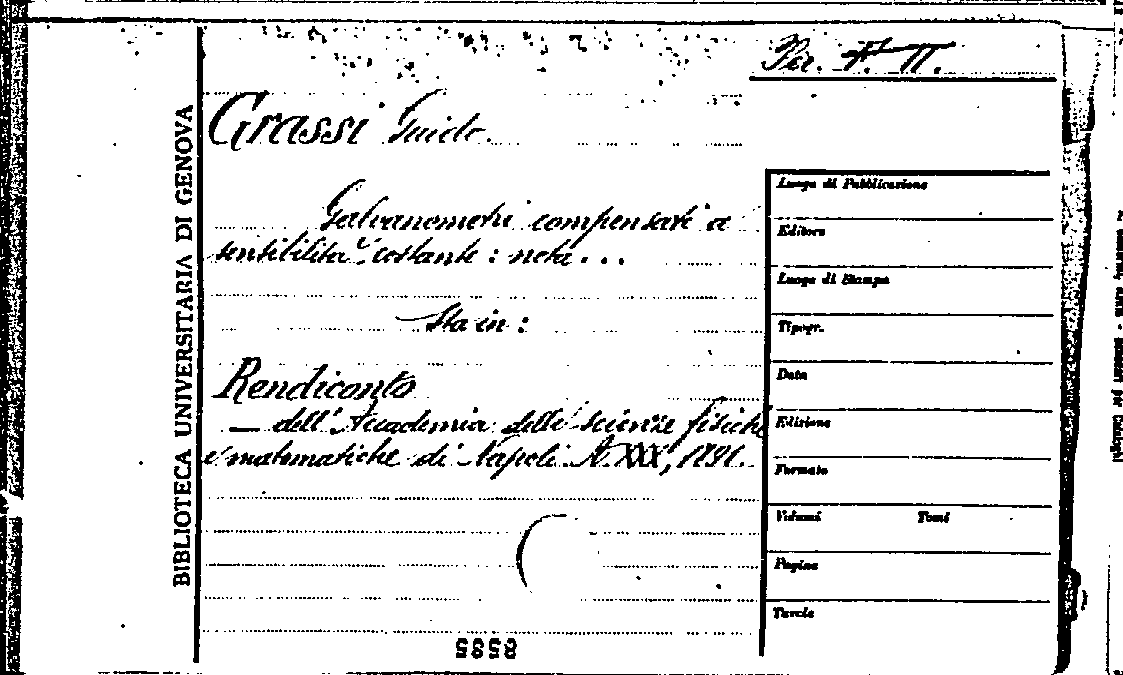 Per. F. II.
Grassi Guido.
Galvanometri compensati a
sensibilità costante : nota...
Sta in :
Rendiconto
— dell'Accademia delle scienze fisiche
e matematiche di Napoli A. XXX, 1891.
BIBLIOTECA UNIVERSITARIA DI GENOVA
Luogo di Pubblicazione
Editore
Luogo di Stampa
Tipogr.
Data
Edizione
Formato
Volumi Tomi
Pagine
Tavole
8585